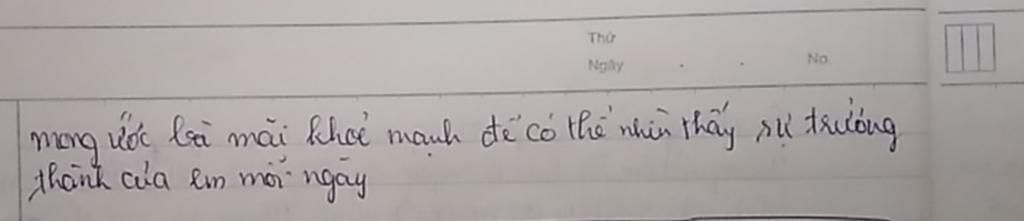 Thứ
Ngày . . No.
mong ước bà mãi khoẻ mạnh để có thể nhìn thấy sự trưởng
thành của em mỗi ngày